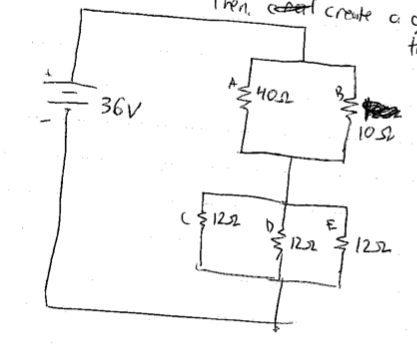 Then, create a
+
36V
-
A 40Ω
B
10Ω
C 12Ω
D 12Ω
E 12Ω